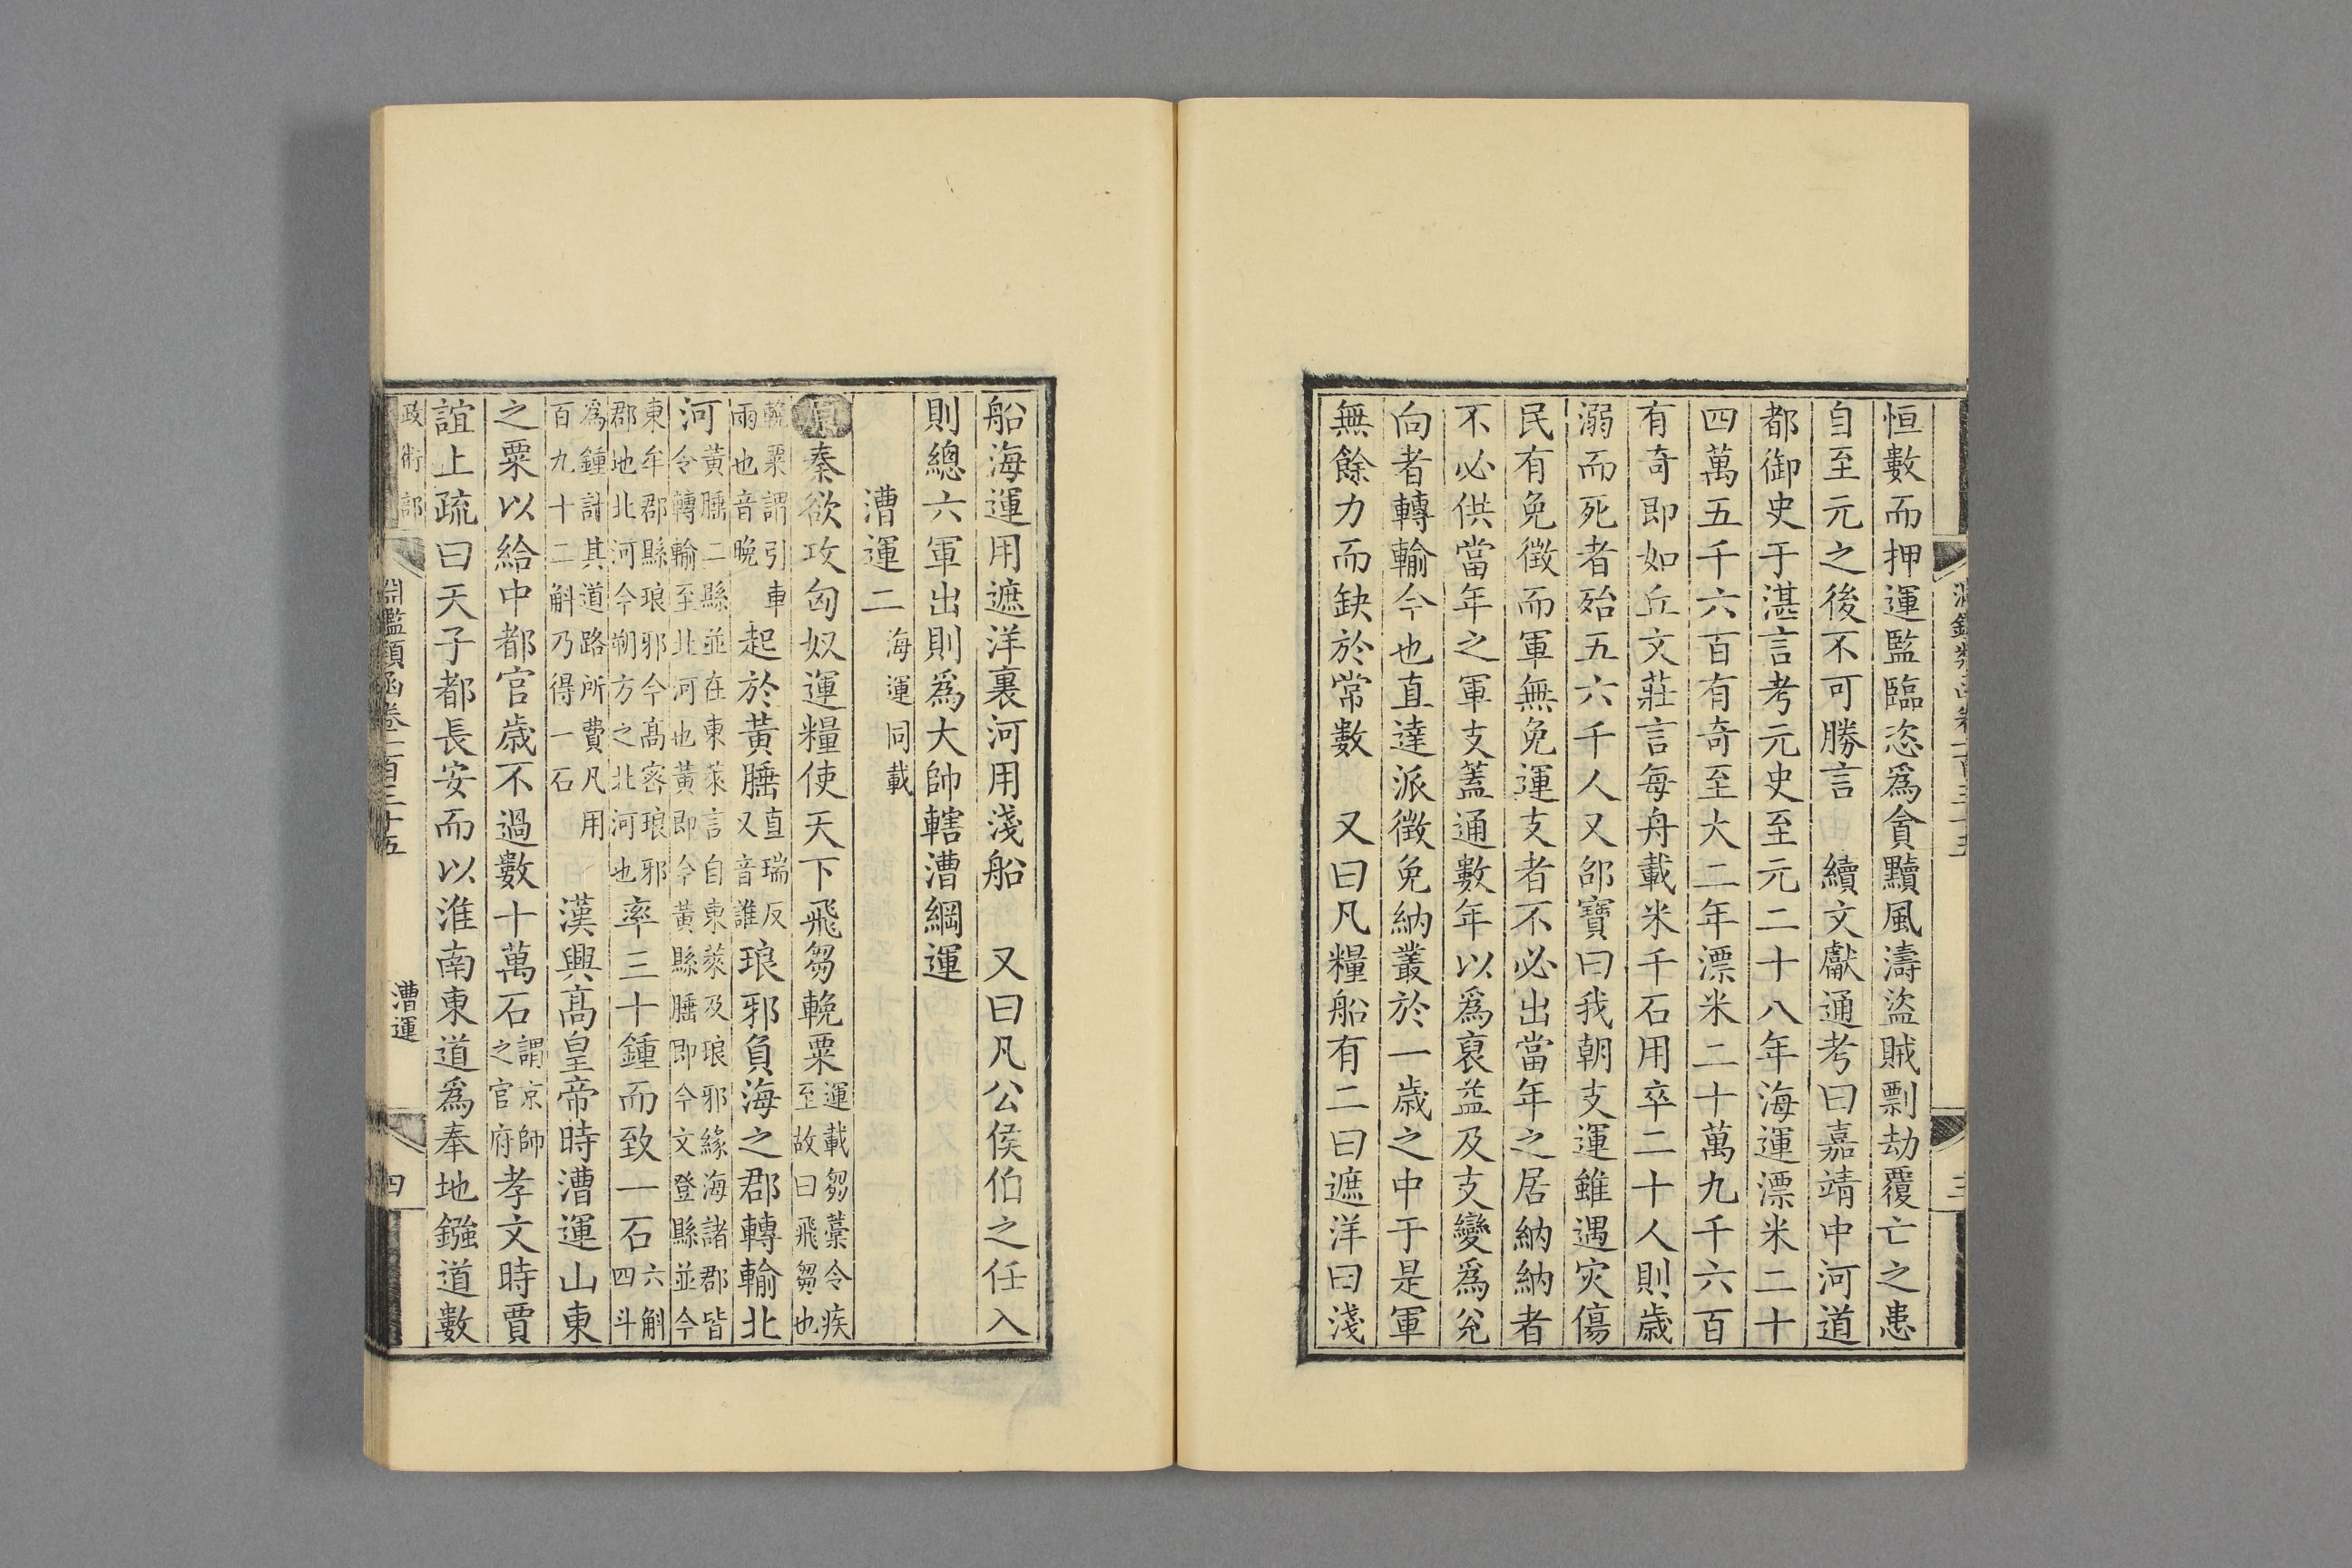 恒數而押運監臨恣爲貪黷風濤盜賊剽劫覆亡之患
自至元之後不可勝言　續文獻通考曰嘉靖中河道
都御史于湛言考元史至元二十八年海運漂米二十
四萬五千六百有奇至大二年漂米二十萬九千六百
有奇即如丘文莊言每舟載米千石用卒二十人則歲
溺而死者殆五六千人又邵寶曰我朝支運雖遇灾傷
民有免徵而軍無免運支者不必出當年之居納納者
不必供當年之軍支蓋通數年以爲裒益及支變爲兌
向者轉輸今也直達派徵免納叢於一歲之中于是軍
無餘力而缺於常數　又曰凡糧船有二曰遮洋曰淺
船海運用遮洋裏河用淺船　又曰凡公侯伯之任入
則總六軍出則爲大帥轄漕綱運
漕運二海運同載
原秦欲攻匈奴運糧使天下飛芻輓粟運載芻藁令疾至故曰飛芻也
輓粟謂引車兩也音晚起於黃腄直瑞反又音誰琅邪負海之郡轉輸北
河黃腄二縣並在東萊言自東萊及琅邪緣海諸郡皆令轉輸至北河也黃即今黃縣腄即今文登縣並今
東牟郡縣琅邪今高密琅邪郡地北河今朔方之北河也率三十鍾而致一石六斛四斗
爲鍾計其道路所費凡用百九十二斛乃得一石漢興高皇帝時漕運山東
之粟以給中都官歲不過數十萬石謂京師之官府孝文時賈
誼上疏曰天子都長安而以淮南東道爲奉地鏹道數
政術部
淵鑑類函卷一百三十五
漕運
四